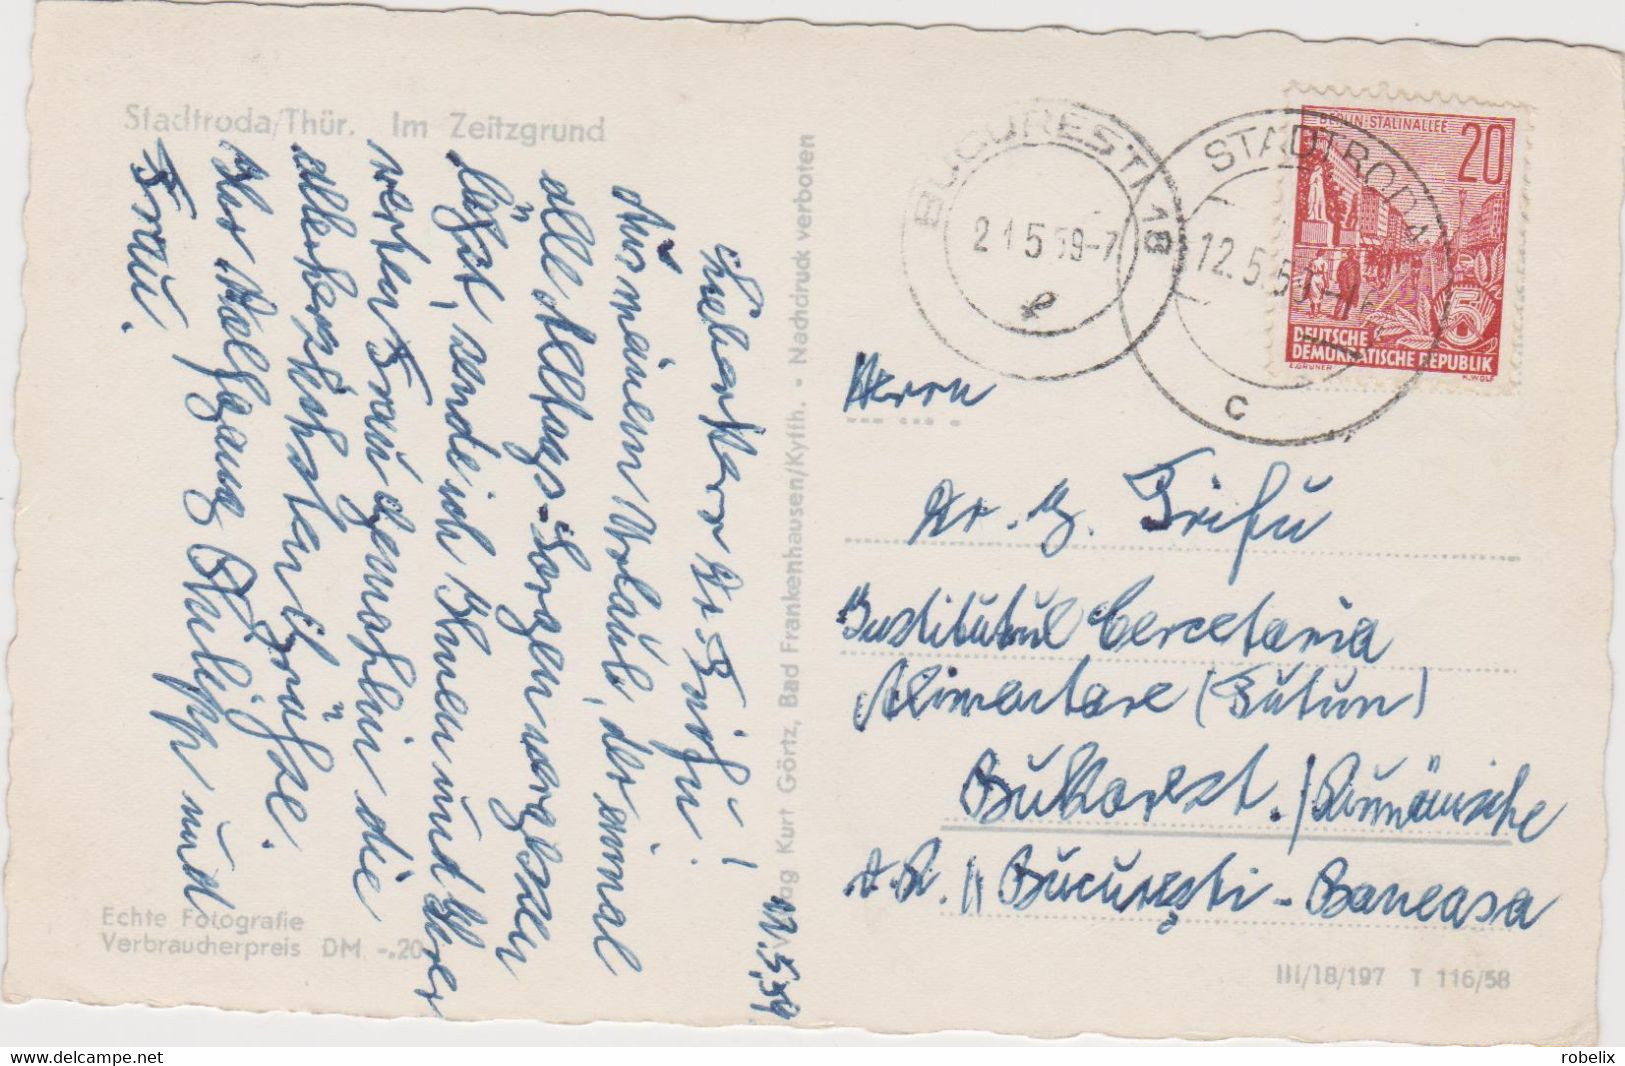 Stadtroda/Thür. Im Zeitzgrund
11.5.59
Lieber Herr Dr. Trifu!
Aus meinem Urlaub, der einmal
alle Alltags-Sorgen vergessen
lässt, sende ich Ihnen und Ihrer
werten Frau Gemahlin die
allerherzlichsten Grüsse.
Ihr Wolfgang und
Frau.
Echte Fotografie
Verbraucherpreis DM -.20
Verlag Kurt Görtz, Bad Frankenhausen/Kyffh. - Nachdruck verboten
BUCURESTI 18
21 5 59-7
STADTRODA
12.5.59
c
BERLIN-STALINALLEE
20
5
DEUTSCHE
DEMOKRATISCHE REPUBLIK
E.GRUNER K.WOLF
Herrn
Dr. G. Trifu
Institutul Cercetaria
Alimentare (Tutun)
Bukarest. / Rumänische
V.R. // Bucureşti - Baneasa
III/18/197 T 116/58
delcampe.net
robelix